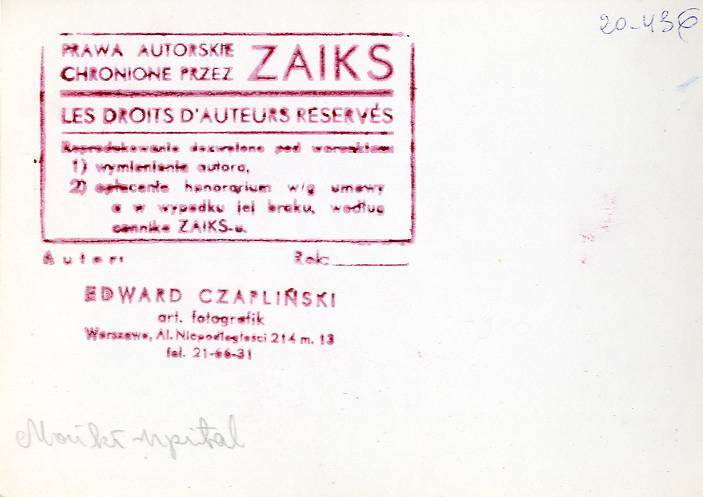 20-436
PRAWA AUTORSKIE
CHRONIONE PRZEZ ZAIKS
LES DROITS D'AUTEURS RESERVÉS
Reprodukowanie dozwolone pod warunkiem
1) wymienienie autora,
2) opłacenie honorarium w/g umowy
a w wypadku jej braku, według
cennika ZAIKS-u.
Autor: Rok:
EDWARD CZAPLIŃSKI
art. fotografik
Warszawa, Al. Niepodległości 214 m. 13
tel. 21-66-31